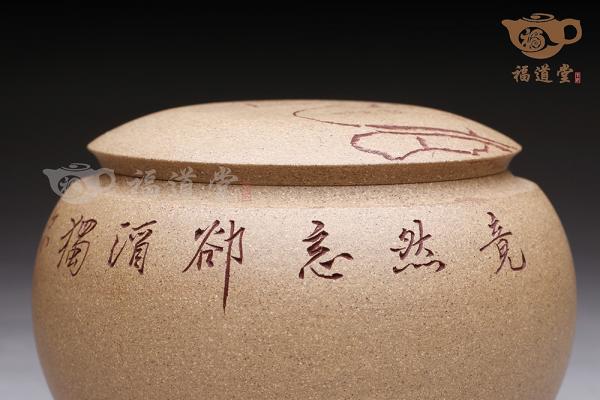 福道堂
福道堂
竟然忘卻獨